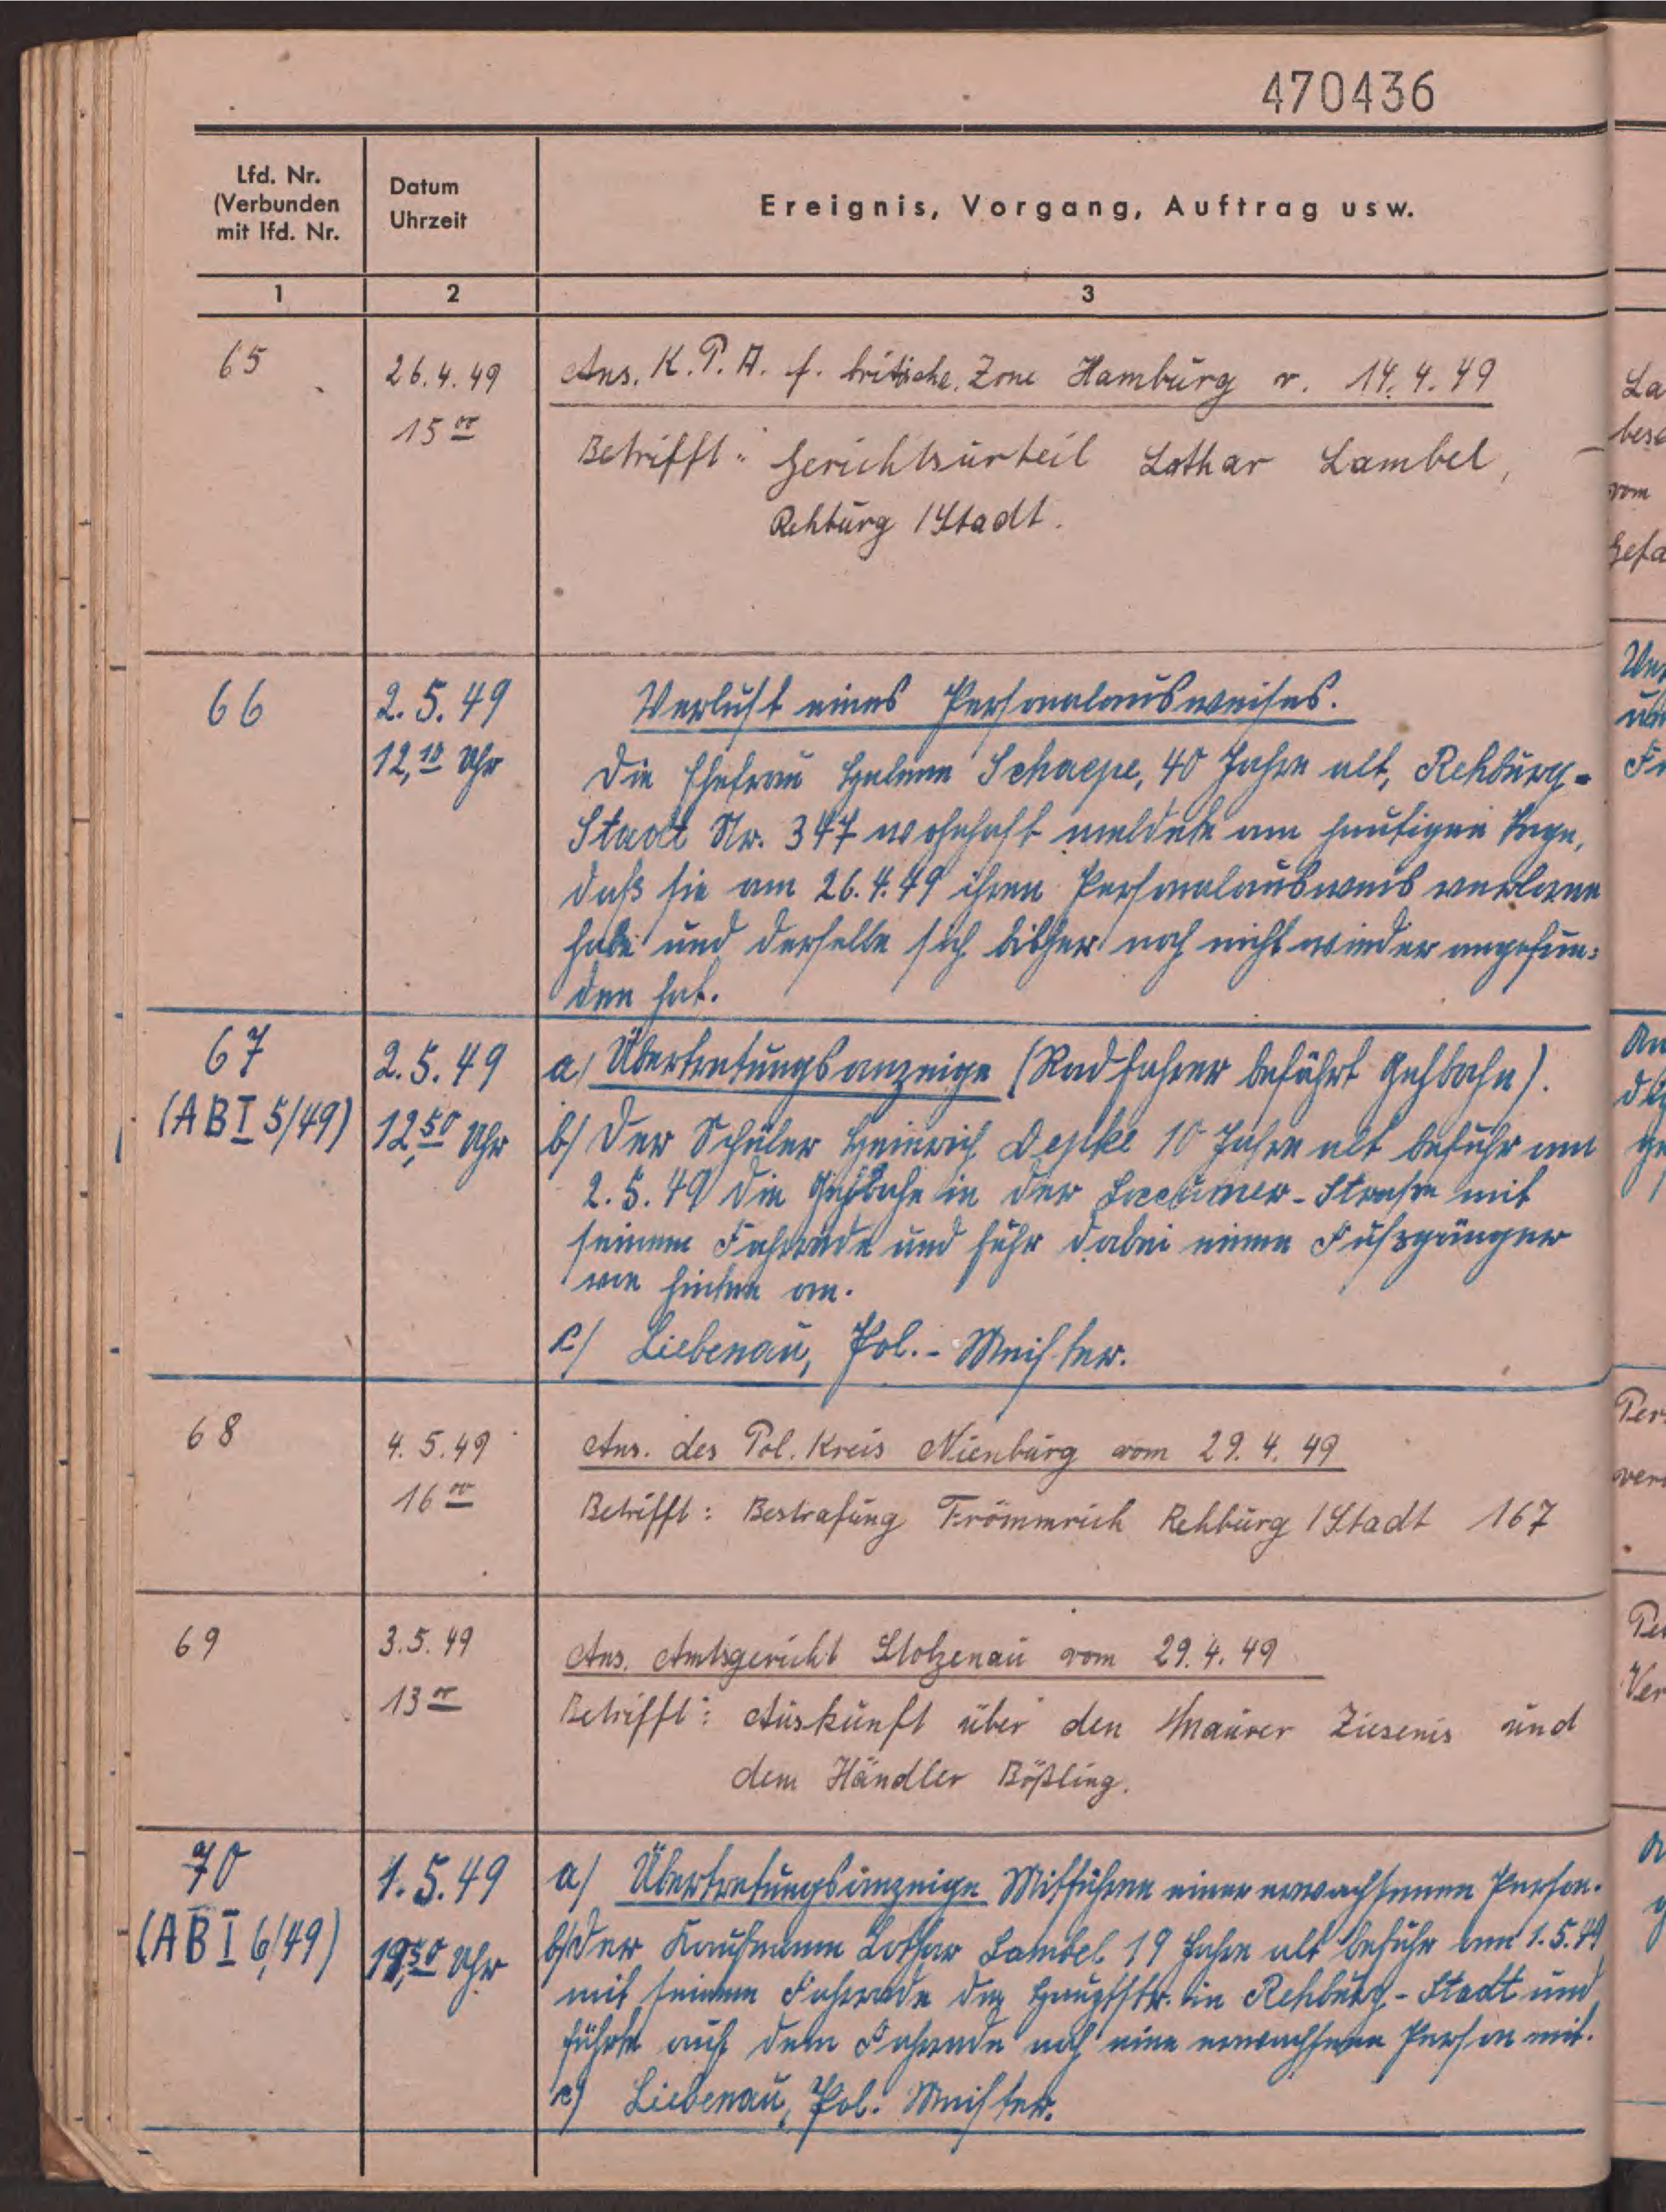 470436
Lfd. Nr.
(Verbunden
mit lfd. Nr.
Datum
Uhrzeit
Ereignis, Vorgang, Auftrag usw.
1
2
3
65
26.4.49
15 00
Ans. K.P.A. f. britische Zone Hamburg v. 14.4.49
Betrifft: Gerichtsurteil Lothar Lambel,
Rehburg/Stadt.
66
2.5.49
12,10 Uhr
Verlust eines Personalausweises.
Die Ehefrau Helene Schaepe, 40 Jahre alt, Rehburg-
Stadt Nr. 347 wohnhaft meldete am heutigen Tage,
daß sie am 26.4.49 ihren Personalausweis verloren
habe und derselbe sich bisher noch nicht wieder angefun-
den hat.
67
(AB I 5/49)
2.5.49
12,50 Uhr
a) Übertretungsanzeige (Radfahrer befährt Gehbahn).
b) Der Schüler Heinrich 10 Jahre alt befuhr am
2.5.49 die Gehbahn in der Loccumer-Strasse mit
seinem Fahrrade und fuhr dabei einen Fußgänger
von hinten an.
c) Liebenau, Pol.-Meister.
68
4.5.49
16 00
Ans. des Pol. Kreis Nienburg vom 29.4.49
Betrifft: Bestrafung Frömmrich Rehburg/Stadt 167
69
3.5.49
13 00
Ans. Amtsgericht Stolzenau vom 29.4.49
Betrifft: Auskunft über den Maurer Ziesenis und
dem Händler Bößling.
70
(AB I 6/49)
1.5.49
19,50 Uhr
a) Übertretungsanzeige Mitführen einer erwachsenen Person.
b) Der Kaufmann Lothar Lambel 19 Jahre alt befuhr am 1.5.49
mit seinem Fahrrade die Hauptstr. in Rehburg-Stadt und
führte auf dem Fahrrade noch eine erwachsene Person mit.
c) Liebenau, Pol. Meister.